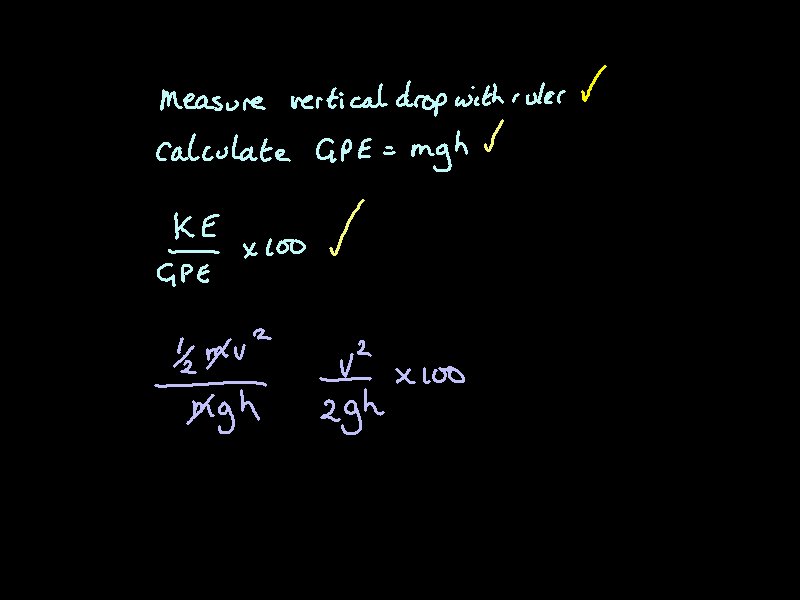 Measure vertical drop with ruler ✓
Calculate GPE = mgh ✓
KE/GPE x 100 ✓
½mv²/mgh v²/2gh x 100